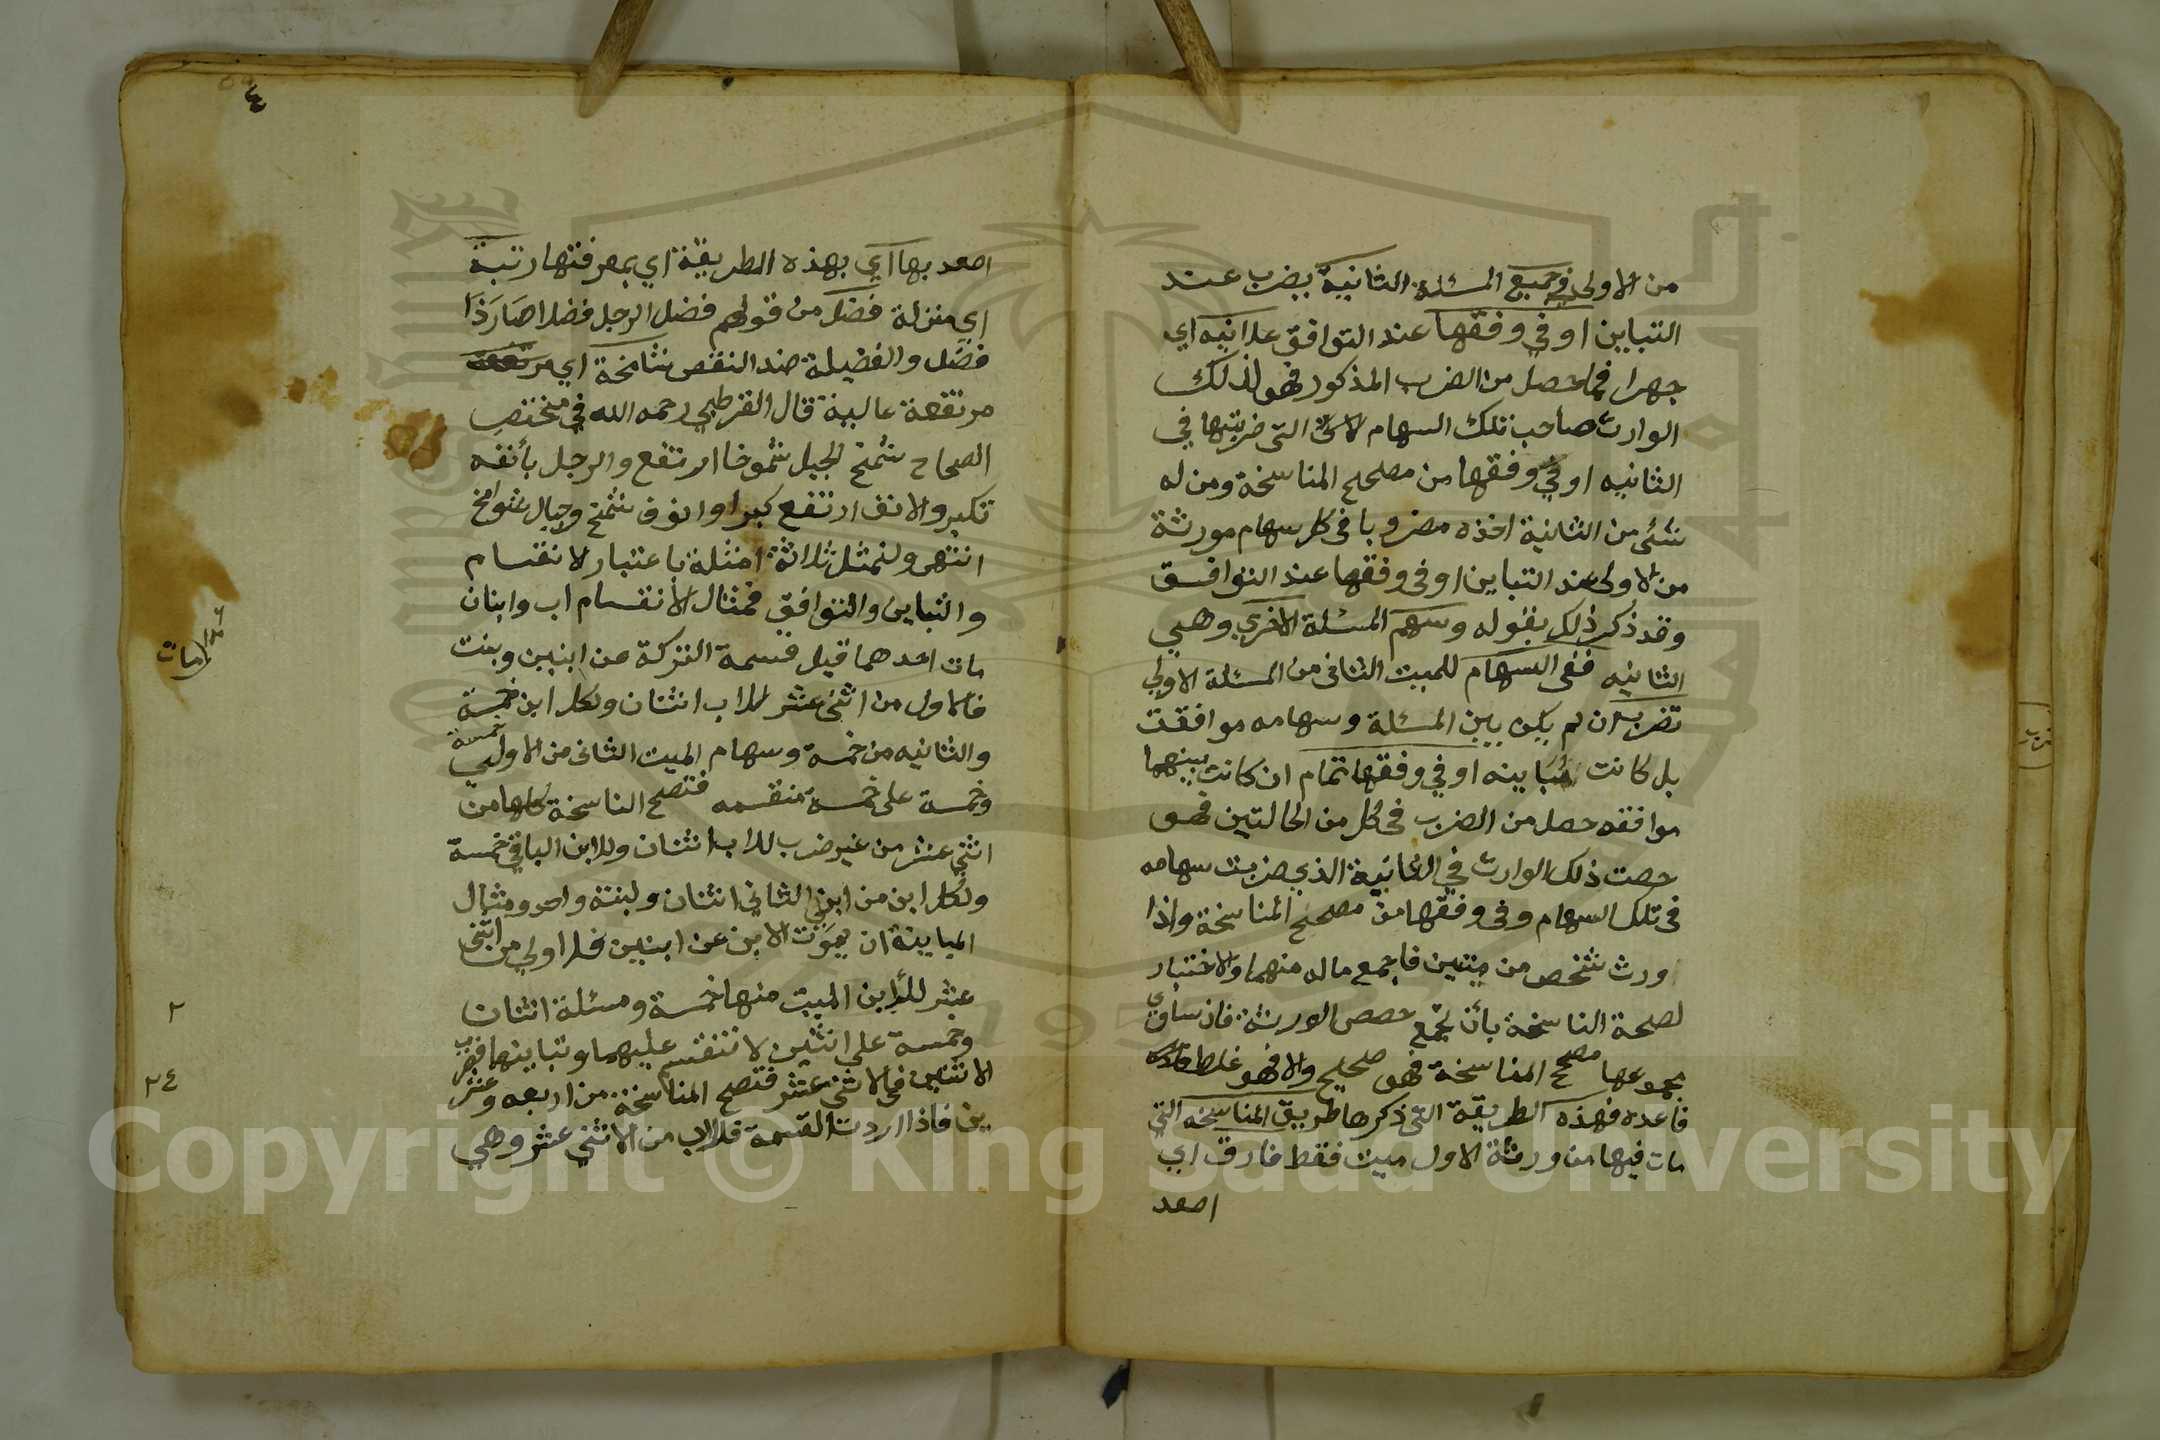 من الاولى في جميع المسئلة الثانية يضرب عند
التباين او في وفقها عند التوافق علانيه اي
جهرا فما حصل من الضرب المذكور فهو لذلك
الوارث صاحب تلك السهام التى ضربتها في
الثانيه او في وفقها من مصحح المناسخة ومن له
شئ من الثانية اخذه مضروبا فى كل سهام مورثة
من الاولى عند التباين او فى وفقها عند التوافق
وقد ذكر ذلك بقوله وسهم المسئلة الاخري وهي
الثانيه ففى السهام للميت الثانى من المسئلة الاولي
تضرب ان لم يكن بين المسئلة وسهامه موافقت
بل كانت مباينه او في وفقها تمام ان كانت بينهما
موافقه حصل من الضرب فى كل من الحالتين فهو
حصت ذلك الوارث في الثانية الذي ضربت سهامه
فى تلك السهام وفى وفقها من مصحح المناسخة واذا
ورث شخص من ميتين فاجمع ماله منهما والاختبار
لصحة الناسخة بأن تجمع حصص الورثة فان ساوي
مجموعها مصحح المناسخة فهو صحيح والا فهو غلط
فاعده فهذه الطريقة التى ذكرها طريق المناسخه التي
مات فيها من ورثة الاول ميت فقط فارق اي
اصعد
٤
اصعد بها اي بهذه الطريقة اي بمعرفتها رتبة
اي منزلة فضل من قولهم فضل الرجل فضلا اصار ذا
فضل والفضيلة ضد النقص شامخة اي
مرتفعة عالية قال القرطبي رحمه الله في مختصر
الصحاح شمخ الجبل شموخا ارتفع والرجل بأنفه
تكبر والانف ارتفع كبرا وانوف شمخ وجبال شوامخ
انتهى ولنمثل ثلاثة امثلة باعتبار الانقسام
والتباين والتوافق فمثال الانقسام اب وابنان
مات احدهما قبل قسمة التركة من ابنين وبنت
فالاول من اثنى عشر للاب اثنان ولكل ابن خمسة
والثانيه من خمسة وسهام الميت الثانى من الاولي خمسة
وخمسة على خمسة منقسمه فتصح الناسخة كلها من
اثني عشر من غير ضرب للاب اثنان وللابن الباقي خمسة
ولكل ابن من ابني الثاني اثنان ولبنته واحد ومثال
المباينة ان يموت الابن عن ابنين فلاولي من اثنى
عشر للأبن الميت منها خمسة ومسئلة اثنان
وخمسة على اثنين لا تنقسم عليهما وتباينها فيضرب
الاثنين فى الاثنى عشر فتصح المناسخة من اربعه وعشر
ين فاذا اردت القسمة فللاب من الاثني عشر وهي
مات
٢
٢٤
Copyright © King Saud University